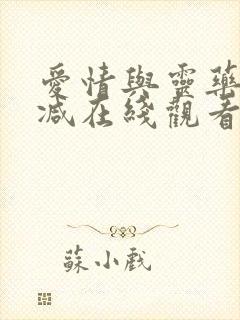 愛情與靈藥
減在綫觀看
蘇小戲